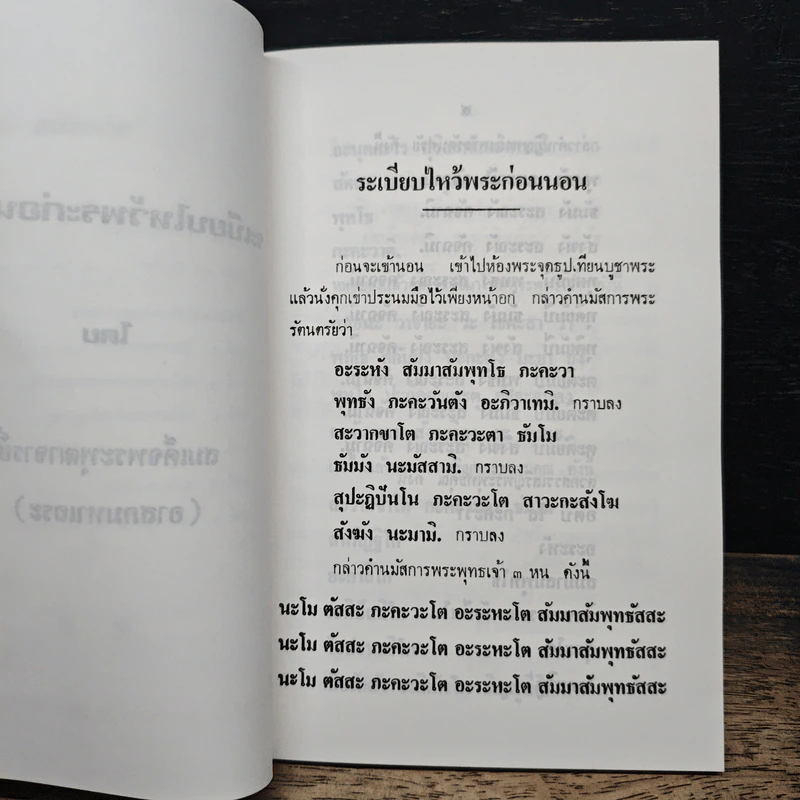 ระเบียบไหว้พระก่อนนอน
ก่อนจะเข้านอน เข้าไปห้องพระจุดธูปเทียนบูชาพระ
แล้วนั่งคุกเข่าประนมมือไว้เพียงหน้าอก กล่าวคำนมัสการพระ
รัตนตรัยว่า
อะระหัง สัมมาสัมพุทโธ ภะคะวา
พุทธัง ภะคะวันตัง อะภิวาเทมิ. กราบลง
สะวากขาโต ภะคะวะตา ธัมโม
ธัมมัง นะมัสสามิ. กราบลง
สุปะฏิปันโน ภะคะวะโต สาวะกะสังโฆ
สังฆัง นะมามิ. กราบลง
กล่าวคำนมัสการพระพุทธเจ้า ๓ หน ดังนี้
นะโม ตัสสะ ภะคะวะโต อะระหะโต สัมมาสัมพุทธัสสะ
นะโม ตัสสะ ภะคะวะโต อะระหะโต สัมมาสัมพุทธัสสะ
นะโม ตัสสะ ภะคะวะโต อะระหะโต สัมมาสัมพุทธัสสะ